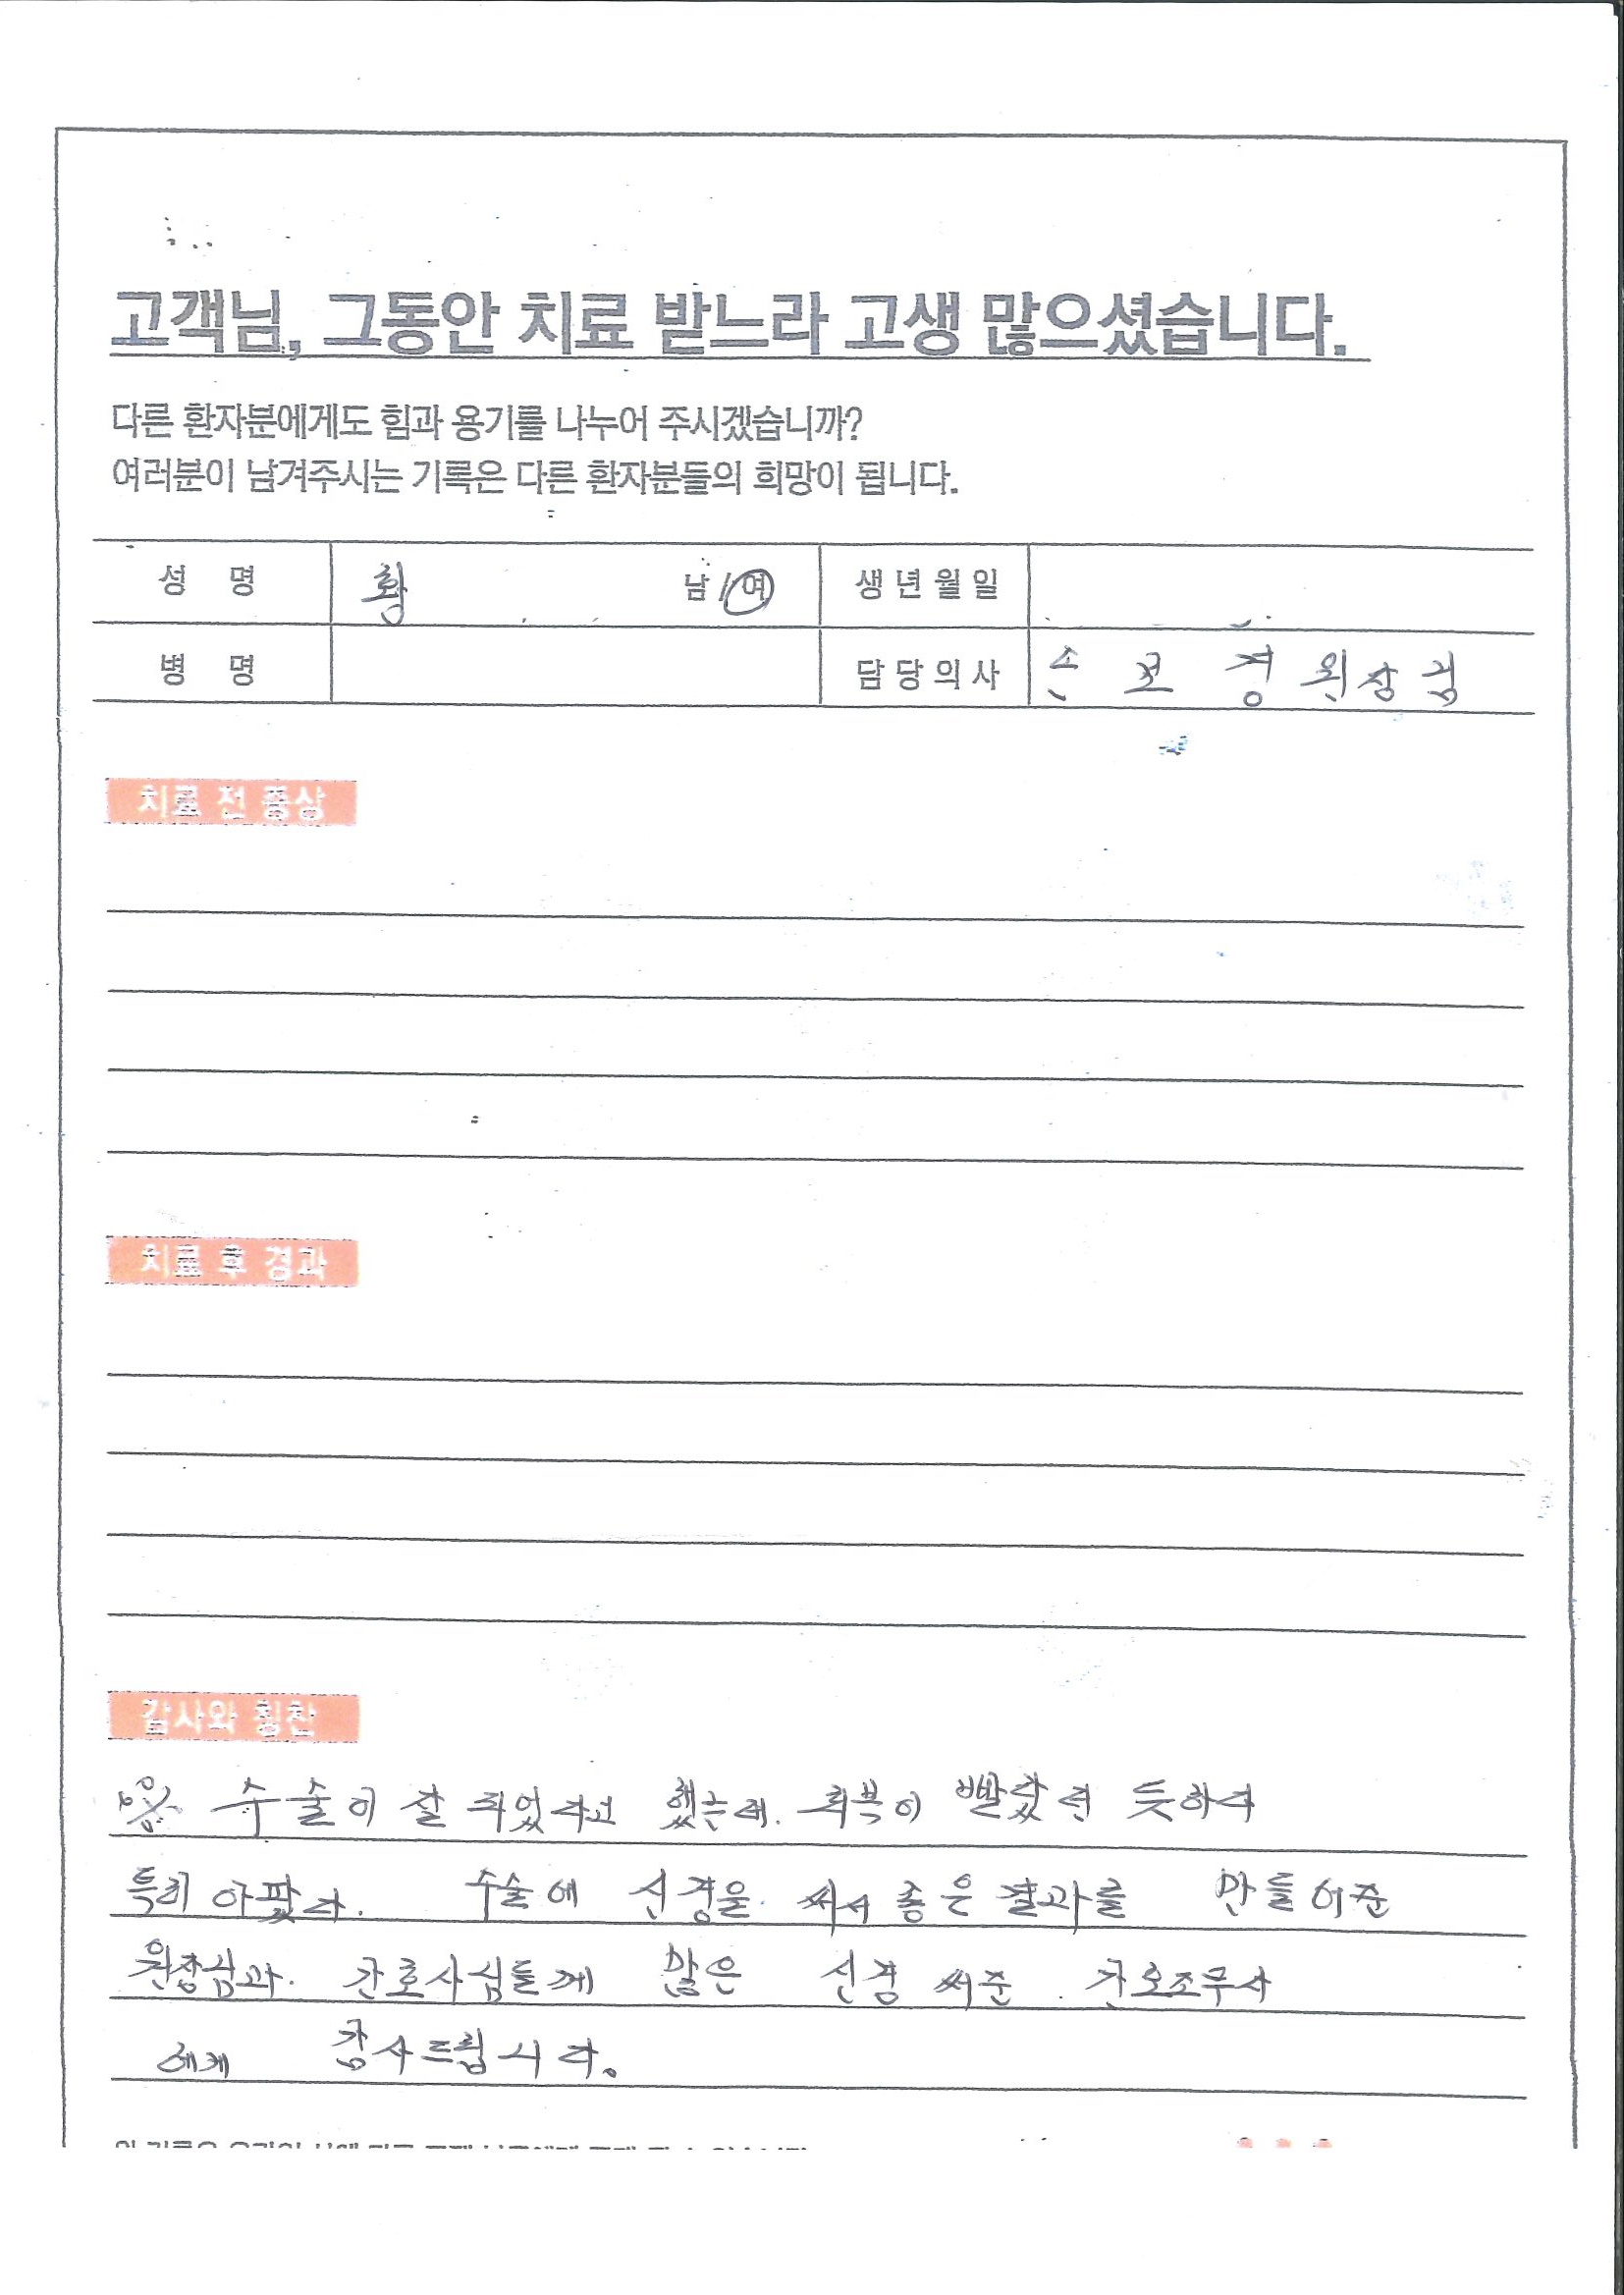 고객님, 그동안 치료 받느라 고생 많으셨습니다.
다른 환자분에게도 힘과 용기를 나누어 주시겠습니까?
여러분이 남겨주시는 기록은 다른 환자분들의 희망이 됩니다.
성 명 황 남/여 생년월일
병 명 담당의사 손보경 원장님
치료 전 증상
치료 후 경과
감사와 칭찬
수술이 잘 되었다고 했는데. 회복이 빨랐던 듯하다
특히 아팠다. 수술에 신경을 써서 좋은 결과를 만들어준
원장님과. 간호사님들께 많은 신경 써준. 간호조무사
에게 감사드립니다.